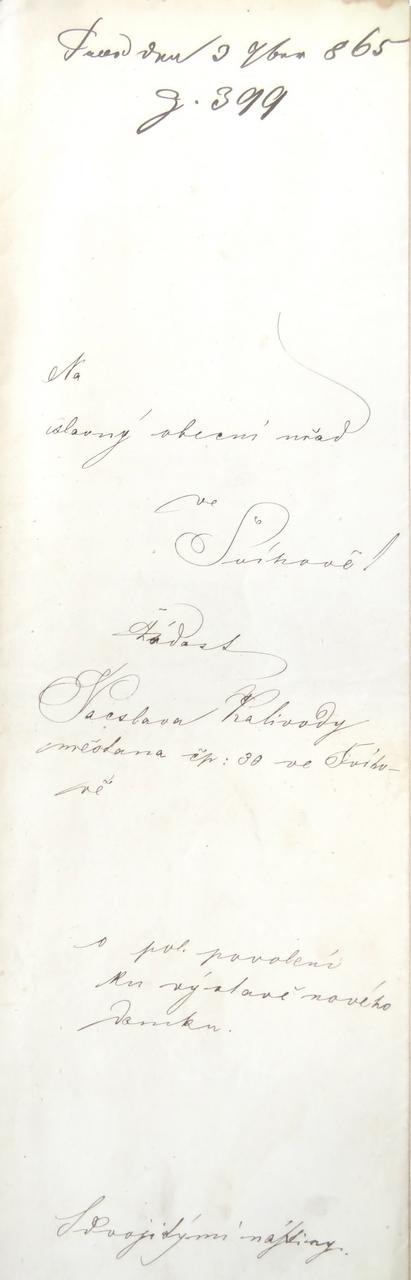 Praes den 3 9ber 865
g. 399
Na
slavný obecní uřad
ve
Švíhově!
Žádost
Vacslava Kalivody
měštana čp: 30 ve Švího-
vě
o pol. povolení
ku výstavě nového
domku.
S dvojitými nástiny.